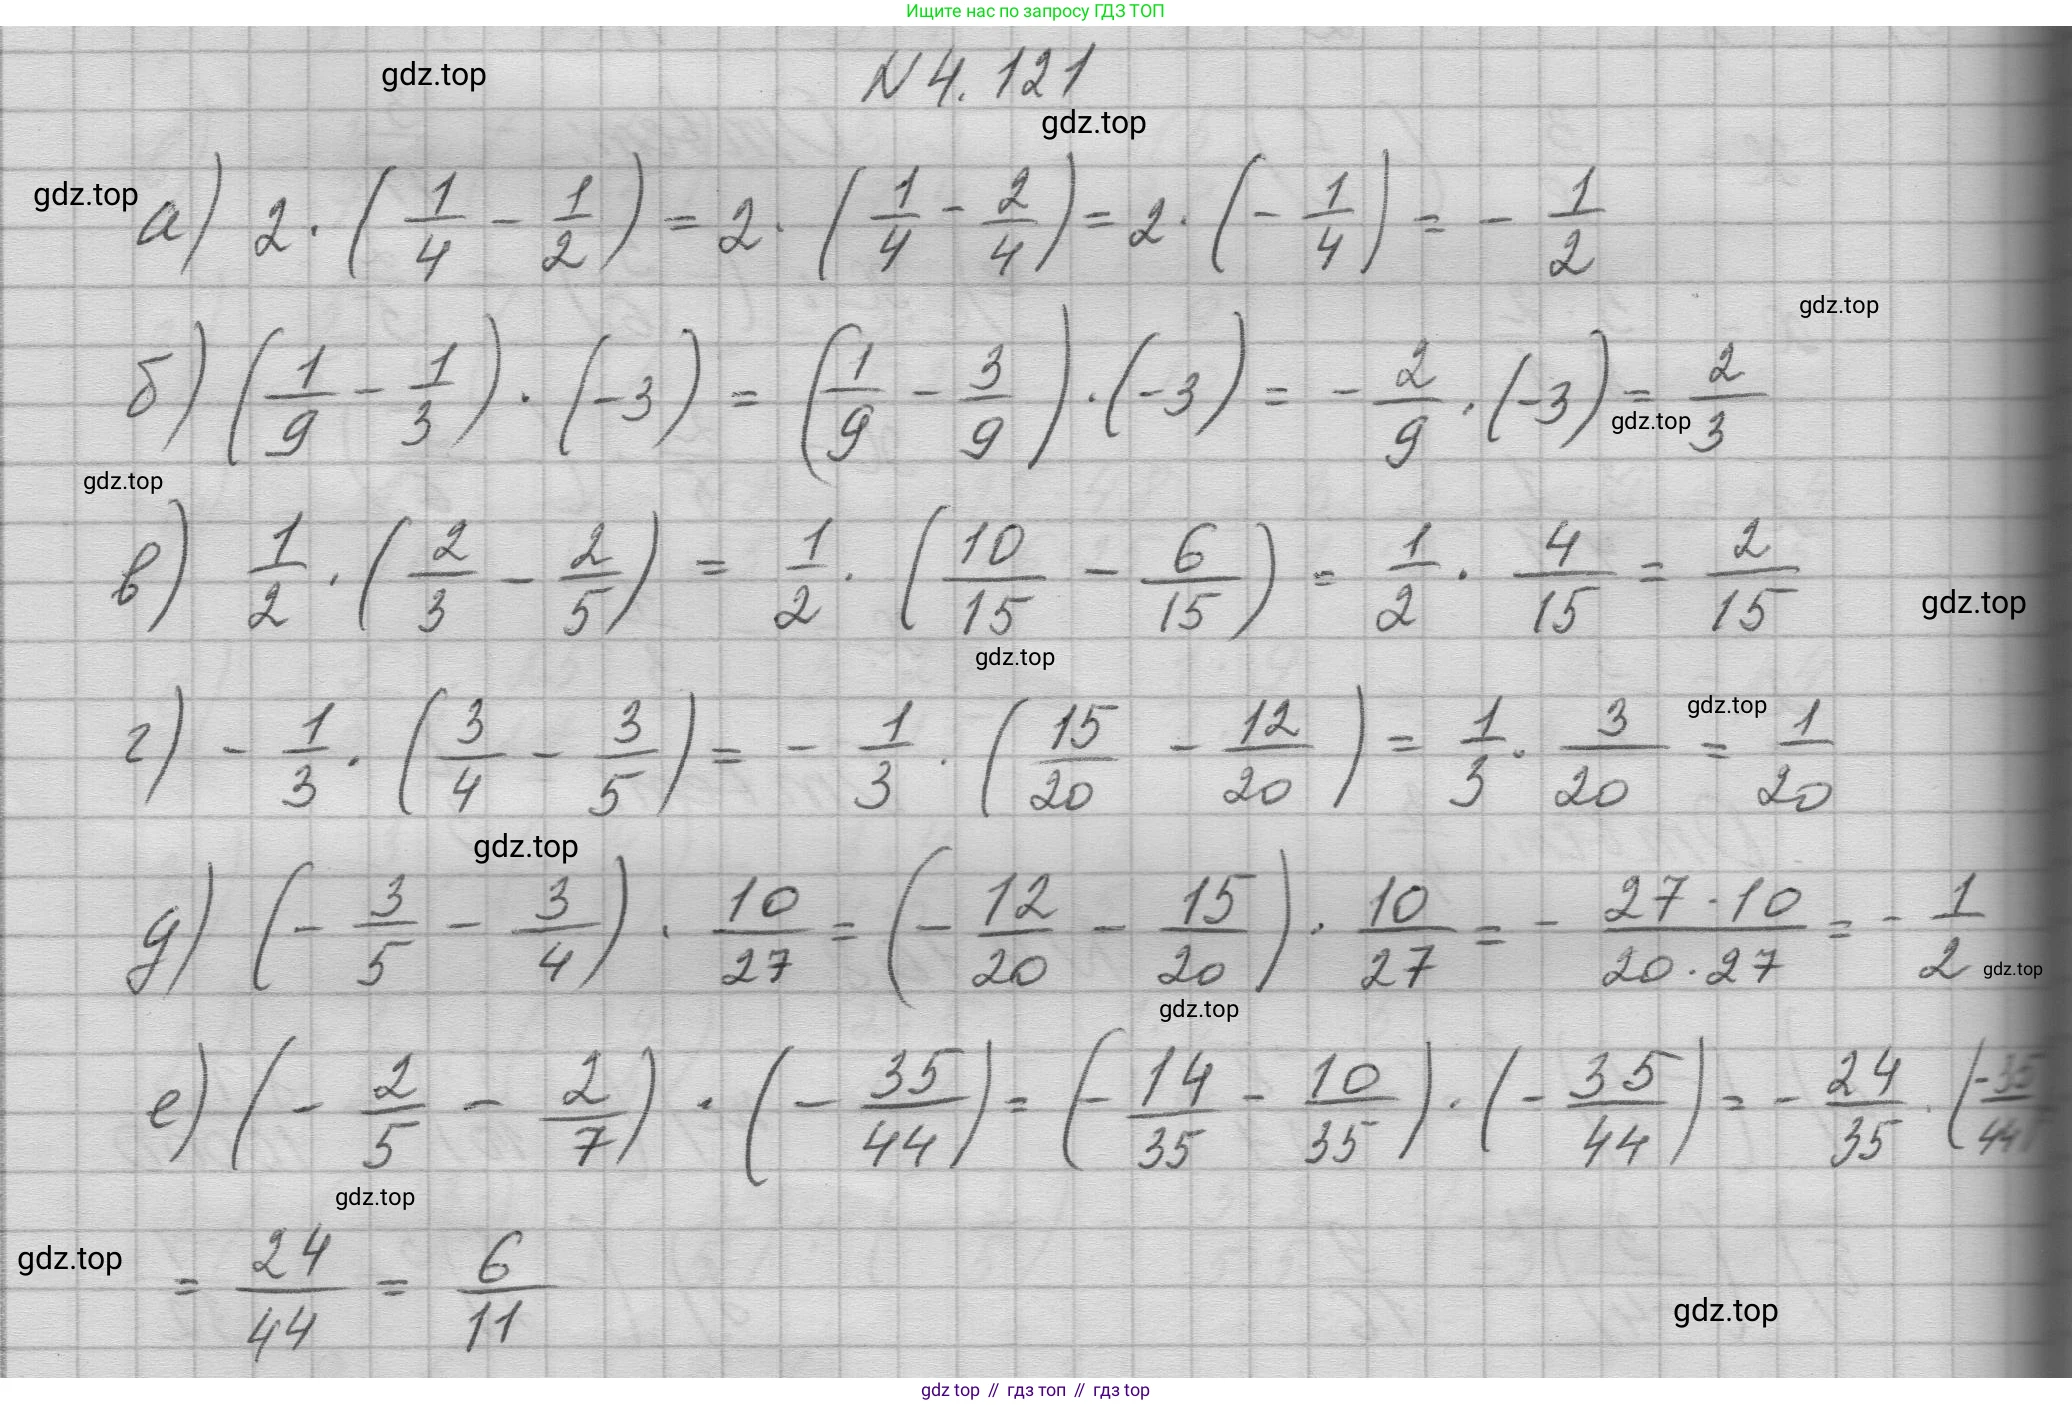 Ищите нас по запросу ГДЗ ТОП
gdz.top
N 4.121
gdz.top
gdz.top
а) 2 · (1/4 - 1/2) = 2 · (1/4 - 2/4) = 2 · (- 1/4) = - 1/2
gdz.top
б) (1/9 - 1/3) · (-3) = (1/9 - 3/9) · (-3) = - 2/9 · (-3) = 2/3
gdz.top
gdz.top
в) 1/2 · (2/3 - 2/5) = 1/2 · (10/15 - 6/15) = 1/2 · 4/15 = 2/15
gdz.top
gdz.top
г) - 1/3 · (3/4 - 3/5) = - 1/3 · (15/20 - 12/20) = 1/3 · 3/20 = 1/20
gdz.top
gdz.top
д) (- 3/5 - 3/4) · 10/27 = (- 12/20 - 15/20) · 10/27 = - 27·10/20·27 = - 1/2
gdz.top
gdz.top
е) (- 2/5 - 2/7) · (- 35/44) = (- 14/35 - 10/35) · (- 35/44) = - 24/35 · (-35/44)
gdz.top
gdz.top
= 24/44 = 6/11
gdz.top
gdz top // гдз топ // гдз top